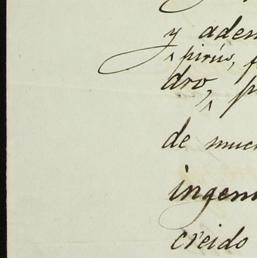 y adem
pirus, f
dro, p
de muc
ingen
creido